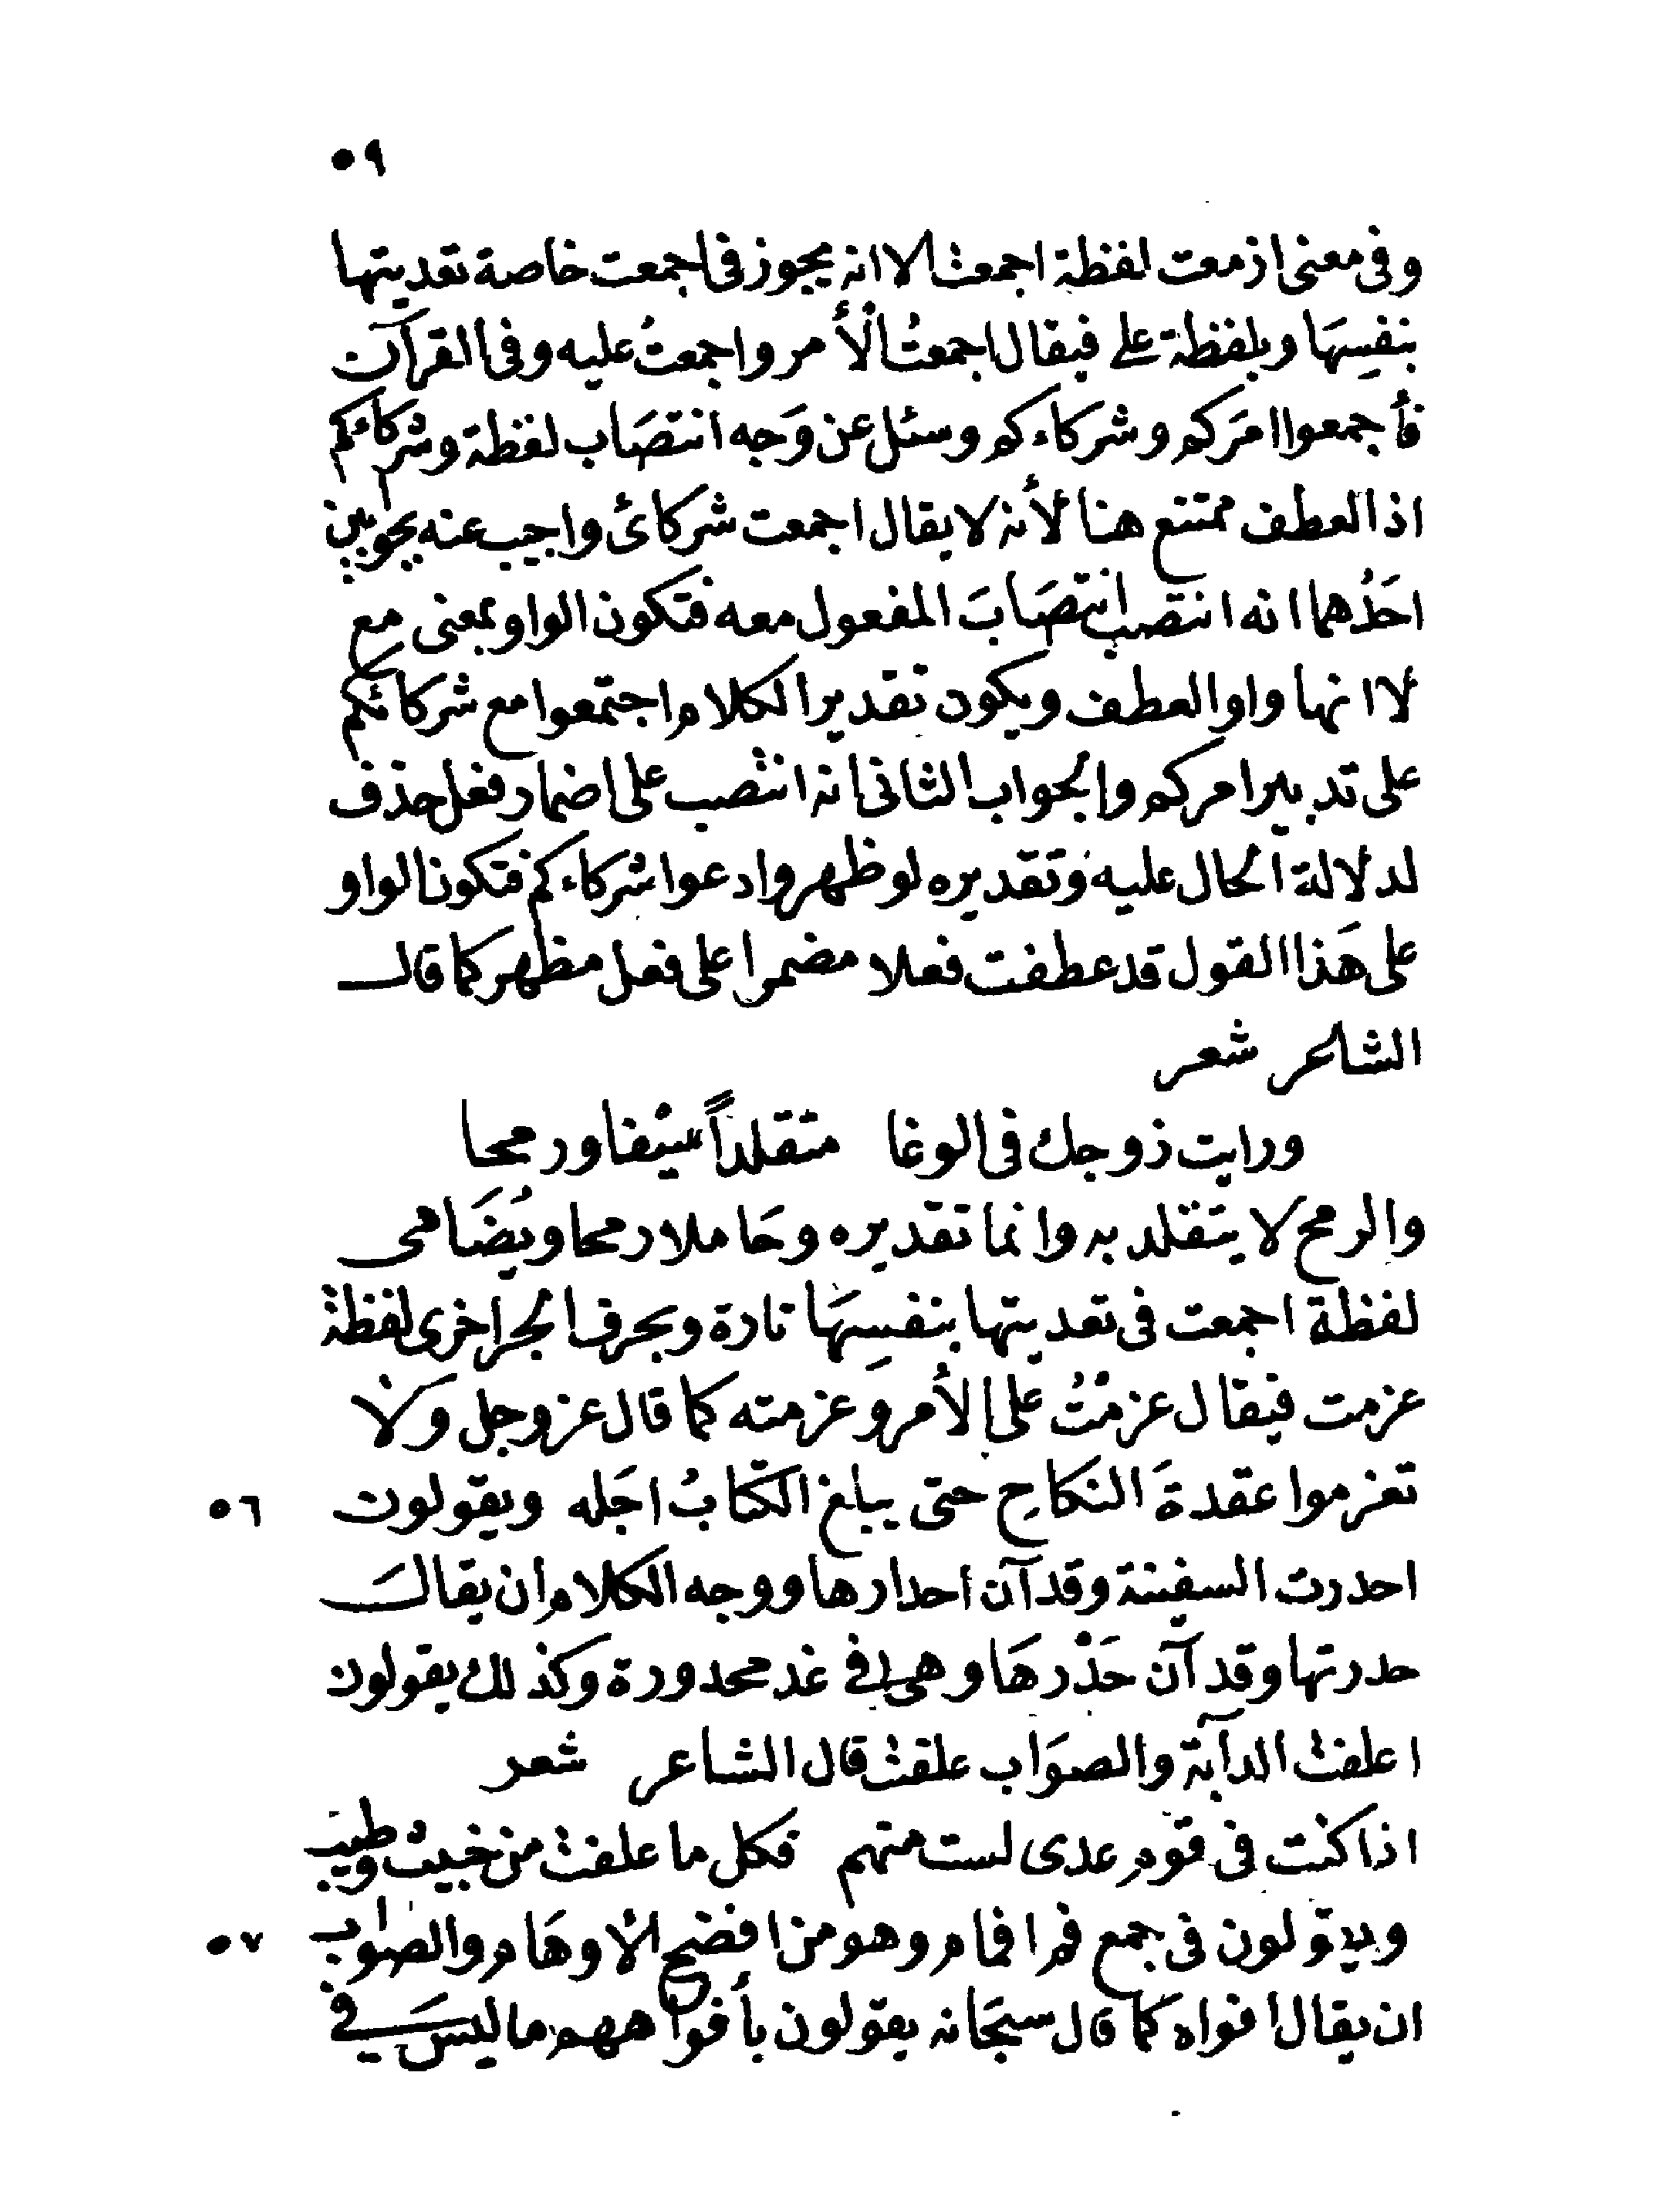 ٥٩
وفى معنى ازمعت لفظة اجمعت الا انه يجوز فى اجمعت خاصة تعديتها
بنفسِهَا وبلفظة على فيقال اجمعتُ الأمر واجمعتُ عليه وفى القرآن
فأجمعوا امرَكم وشركاءكم وسئل عن وَجه انتصَاب لفظة وشركاءكم
اذ العطف ممتنع هنا لأنه لا يقال اجمعت شركائ واجيب عنه بجوابين
احَدُهما انه انتصب انتصَابَ المفعول معه فتكون الواو بمعنى مع
لا انها واو العطف ويكون تقدير الكلام اجتمعوا مع شركائكم
على تدبير امركم والجواب الثانى انه انتصب على اضمار فعل حذف
لدلالة الحال عليه وتقديره لو ظهر وادعوا شركاءكم فتكون الواو
على هَذا القول قد عطفت فعلا مضمرا على فعل مظهر كما قال
الشاعر شعر
ورايت زوجك فى الوغا متقلداً سيْفا ورمحا
والرمح لا يتقلد به وانما تقديره وحَاملا رمحا ويُضَاهى
لفظة اجمعت فى تعديتها بنفسِهَا تارة وبحرف الجر اخرى لفظة
عزمت فيقال عزمْتُ على الأمر وعزمته كما قال عز وجل وَلا
تعزموا عقدةَ النكاحِ حتى يبلغ الكتابُ اجَله ويقولون
٥٦
احدرت السفينة وقد آن احدارها ووجه الكلام ان يقالَ
حدرتها وقد آن حَدْرهَا وهى فى غد محدورة وكذلك يقولون
اعلفت الدآبة والصوَاب علفت قال الشاعر شعر
اذا كنت فى قوم عدى لست منهم فكل ما علفت من خبيث وطيب
ويقولون فى جمع فم افمام وهو من افضح الأوهَام والصواب
٥٧
ان يقال افواه كما قال سبحَانه يقولون بأفواههم ما ليسَ فى